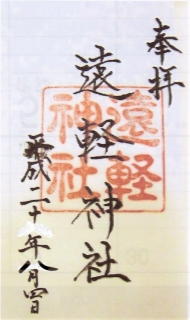 奉拝
遠軽神社
遠軽
神社
平成二十年八月四日